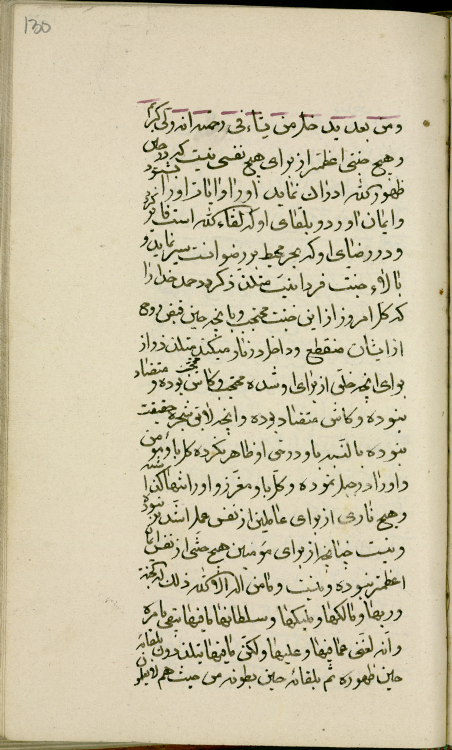 130
ومن بعد یدخل من یشاء فی رحمته انه ولی کبیر
و هیچ جنتی اعظم از برای هیچ نفسی نیست که در حین
ظهور الله ادراک نماید اورا و ایات اورا
و ایمان اورد و بلقای او که لقاء الله است فائز
و در رضای او که بحر محیط بر رضوانست سیر نماید و
بالاء جنت فردانیت متلذذ گردد حمد خدا را
که کل امروز از این جنت محتجب و بانچه حین قبض روح
از ایشان منقطع و داخل در نار میگردند متلذذ و از
برای انچه خلق از برای او شده محتجب و کاش بوده و متضاد
نبوده و کاش متضاد بوده و انچه لایق شجره حقیقت
نبوده بالنسبه باو در حق او ظاهر نکرده کل باو مومن
و اورا در جبل نموده و کل باو معزز و اورا تنها
و هیچ ناری از برای عاملین از نفس عمل اشد تر نبوده
و نیست چنانچه از برای مومنین هیچ جنتی از نفس ایمان
اعظم نبوده و نیست و ما من اله الا الله ذلک
وربها و مالکها و ملیکها و سلطانها ما فیها یتقی بامره
وانه لغنی عما فیها و علیها ولکن ما فیها یتلذذون بلقائه
حین ظهوره ثم بلقائه حین بطونه من حیث هم لا یعلمون